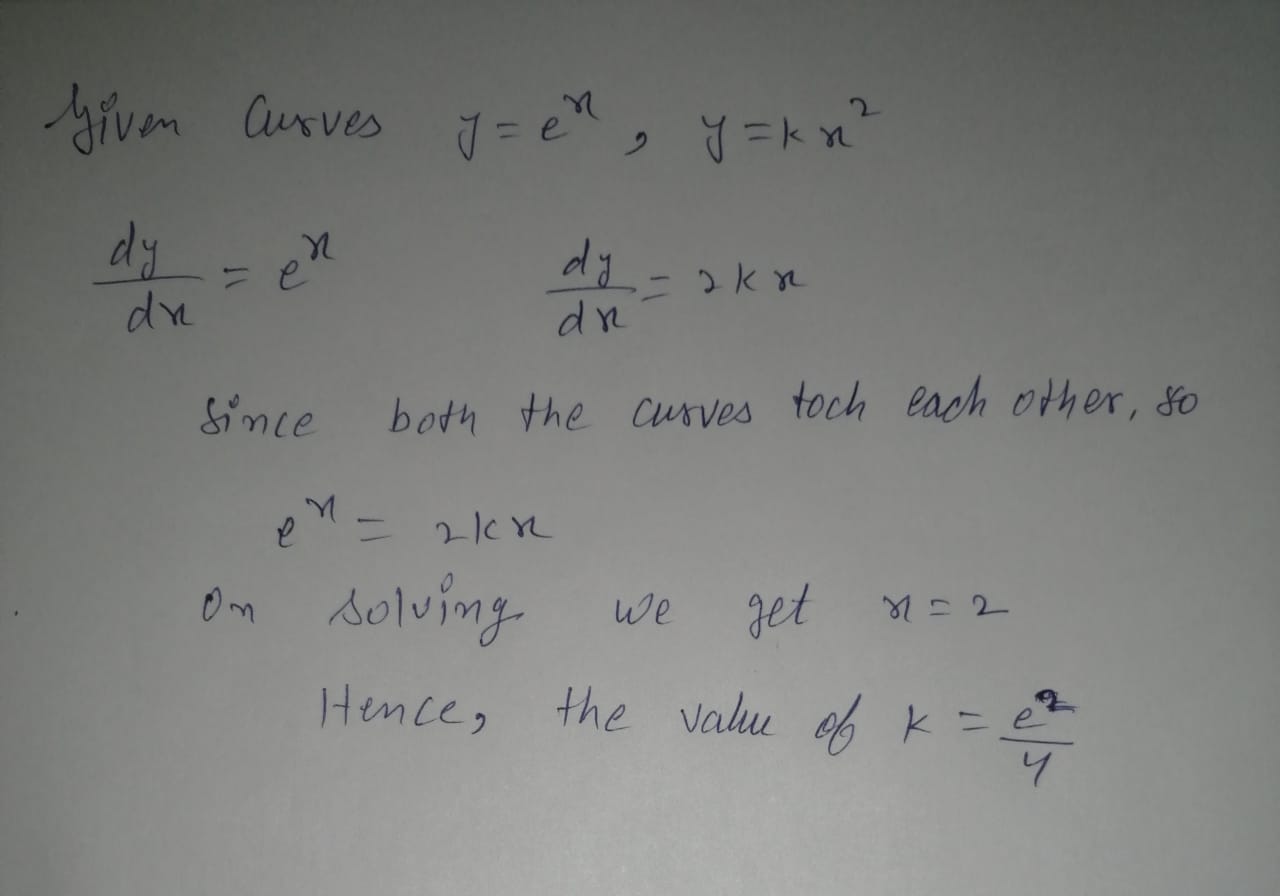 Given Curves y = e^x , y = k x^2
dy/dx = e^x dy/dx = 2kx
Since both the curves toch each other, so
e^x = 2kx
On solving we get x = 2
Hence, the value of k = e^2/4